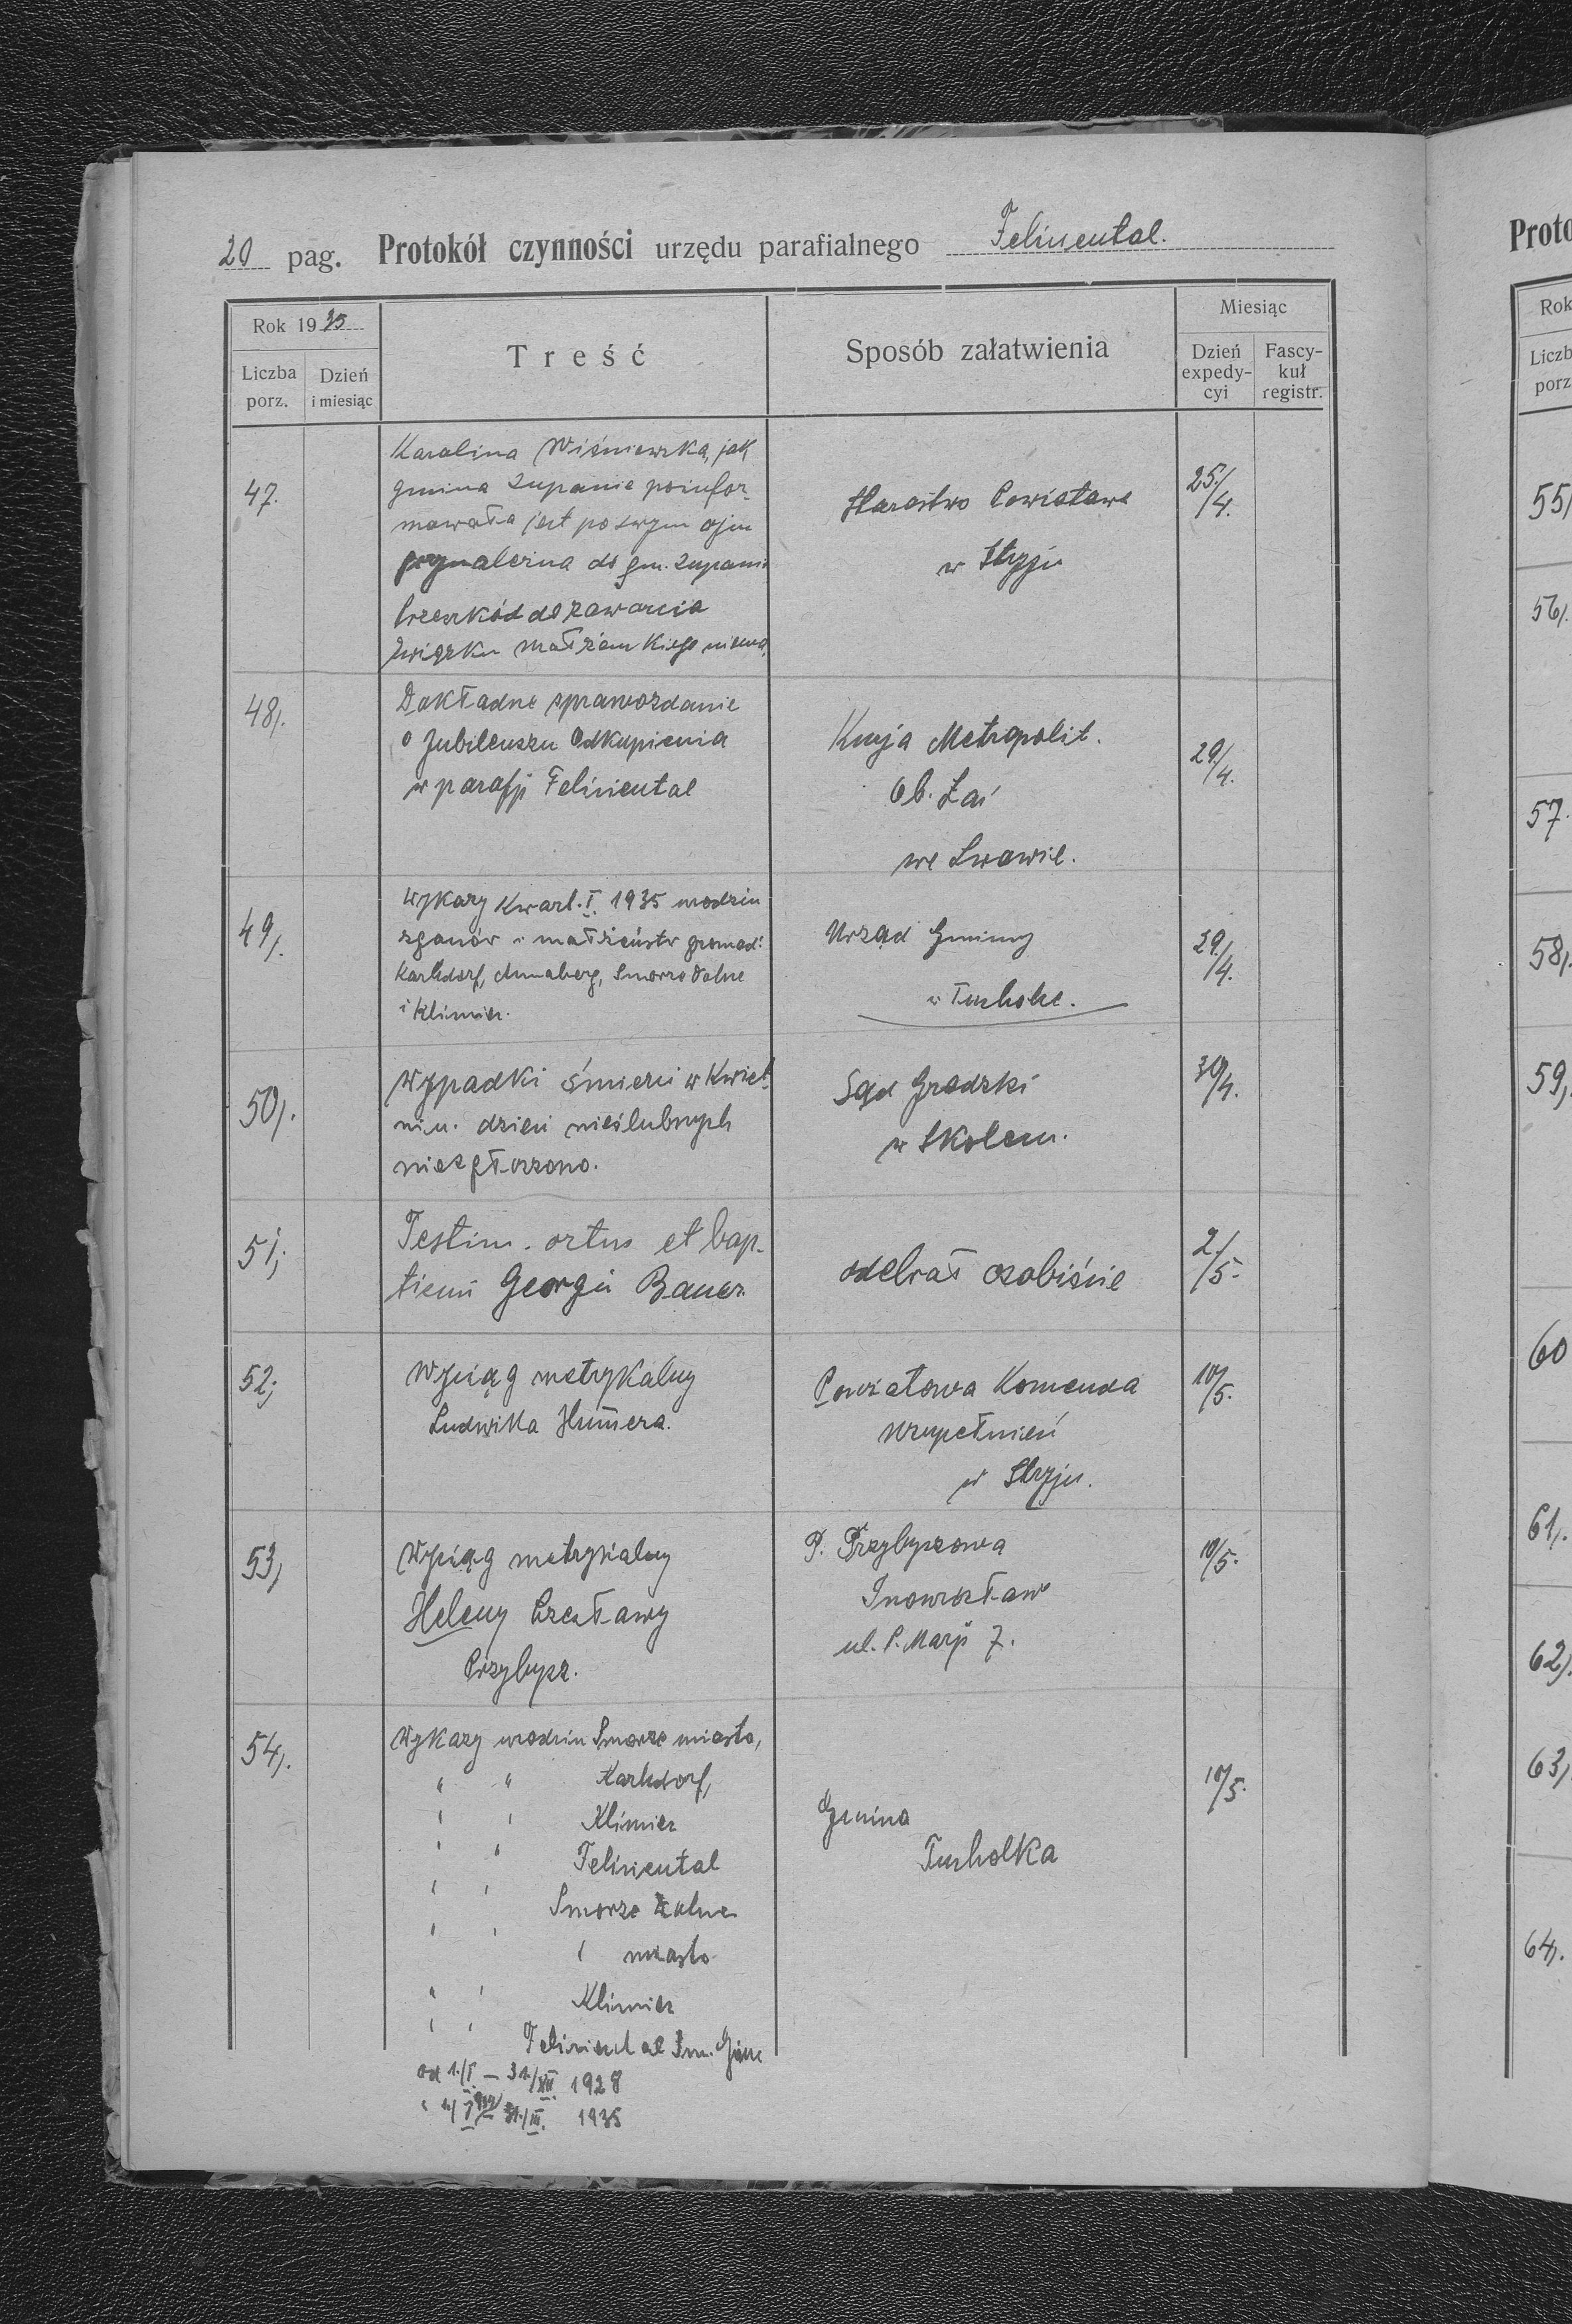 20 pag. Protokół czynności urzędu parafialnego Feliziental.
Rok 1935
Liczba porz.
Dzień i miesiąc
Treść
Sposób załatwienia
Miesiąc
Dzień expedycyi
Fascykuł registr.
47.
Karolina Wiśniewska, jak
gmina Żupanie poinfor-
mowała jest po swym ojcu
przynależna do gm. Żupanie
Przeszkód do zawarcia
związku małżeńskiego niema.
Starostwo Powiatowe
w Stryju
25/4.
48/.
Dokładne sprawozdanie
o Jubileuszu Odkupienia
w parafji Feliziental
Kurja Metropolit.
Ob. Łać
we Lwowie.
29/4.
49/.
Wykazy kwart. I. 1935 urodzin
zgonów i małżeństw gromad:
Karlsdorf, Annaberg, Smorze Dolne
i Klimiec.
Urząd Gminny
w Tucholce.
29/4.
50/.
Wypadki śmierci w kwiet-
niu. dzieci nieślubnych
niezgłoszono.
Sąd Grodzki
w Skolem.
30/4.
51;
Testim. ortus et bap-
tismi Georgii Bauer.
odebrał osobiście
2/5.
52;
Wyciąg metrykalny
Ludwika Hümera.
Powiatowa Komenda
Uzupełnień
w Stryju.
10/5.
53,
Wyciąg metrykalny
Heleny Czesławy
Przybysz.
P. Przybyszowa
Inowrocław
ul. P. Marji 7.
10/5.
54,.
Wykazy urodzin Smorze miasto,
" " Karlsdorf,
" " Klimiec
" " Feliziental
" " Smorze Dolne
" " " miasto
" " Klimiec
" " Feliziental Sm. Górne
od 1./I. — 31./XII. 1928
31./III. 1935
Gmina
Tucholka
10/5.
Proto
Rok
Liczb
porz
55/
56/.
57.
58/.
59,
60
61/.
62/.
63/.
64/.